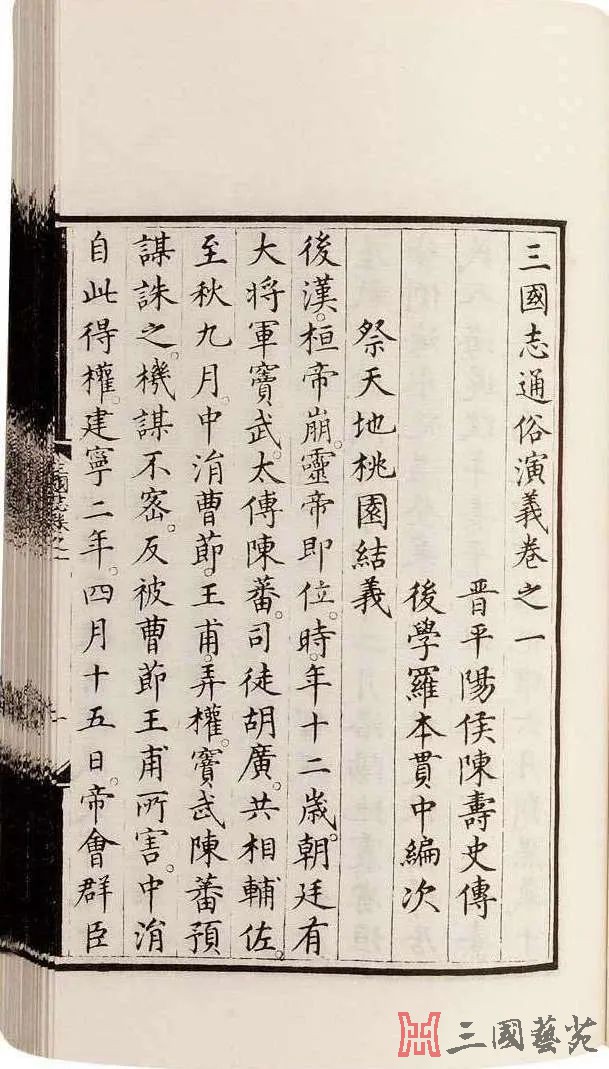 三國志通俗演義卷之一
晉平陽侯陳壽史傳
後學羅本貫中編次
祭天地桃園結義
後漢。桓帝崩。靈帝即位。時年十二歲。朝廷有
大將軍竇武。太傅陳蕃。司徒胡廣。共相輔佐。
至秋九月。中涓曹節。王甫。弄權。竇武陳蕃預
謀誅之。機謀不密。反被曹節王甫所害。中涓
自此得權。建寧二年。四月十五日。帝會群臣
三國藝苑